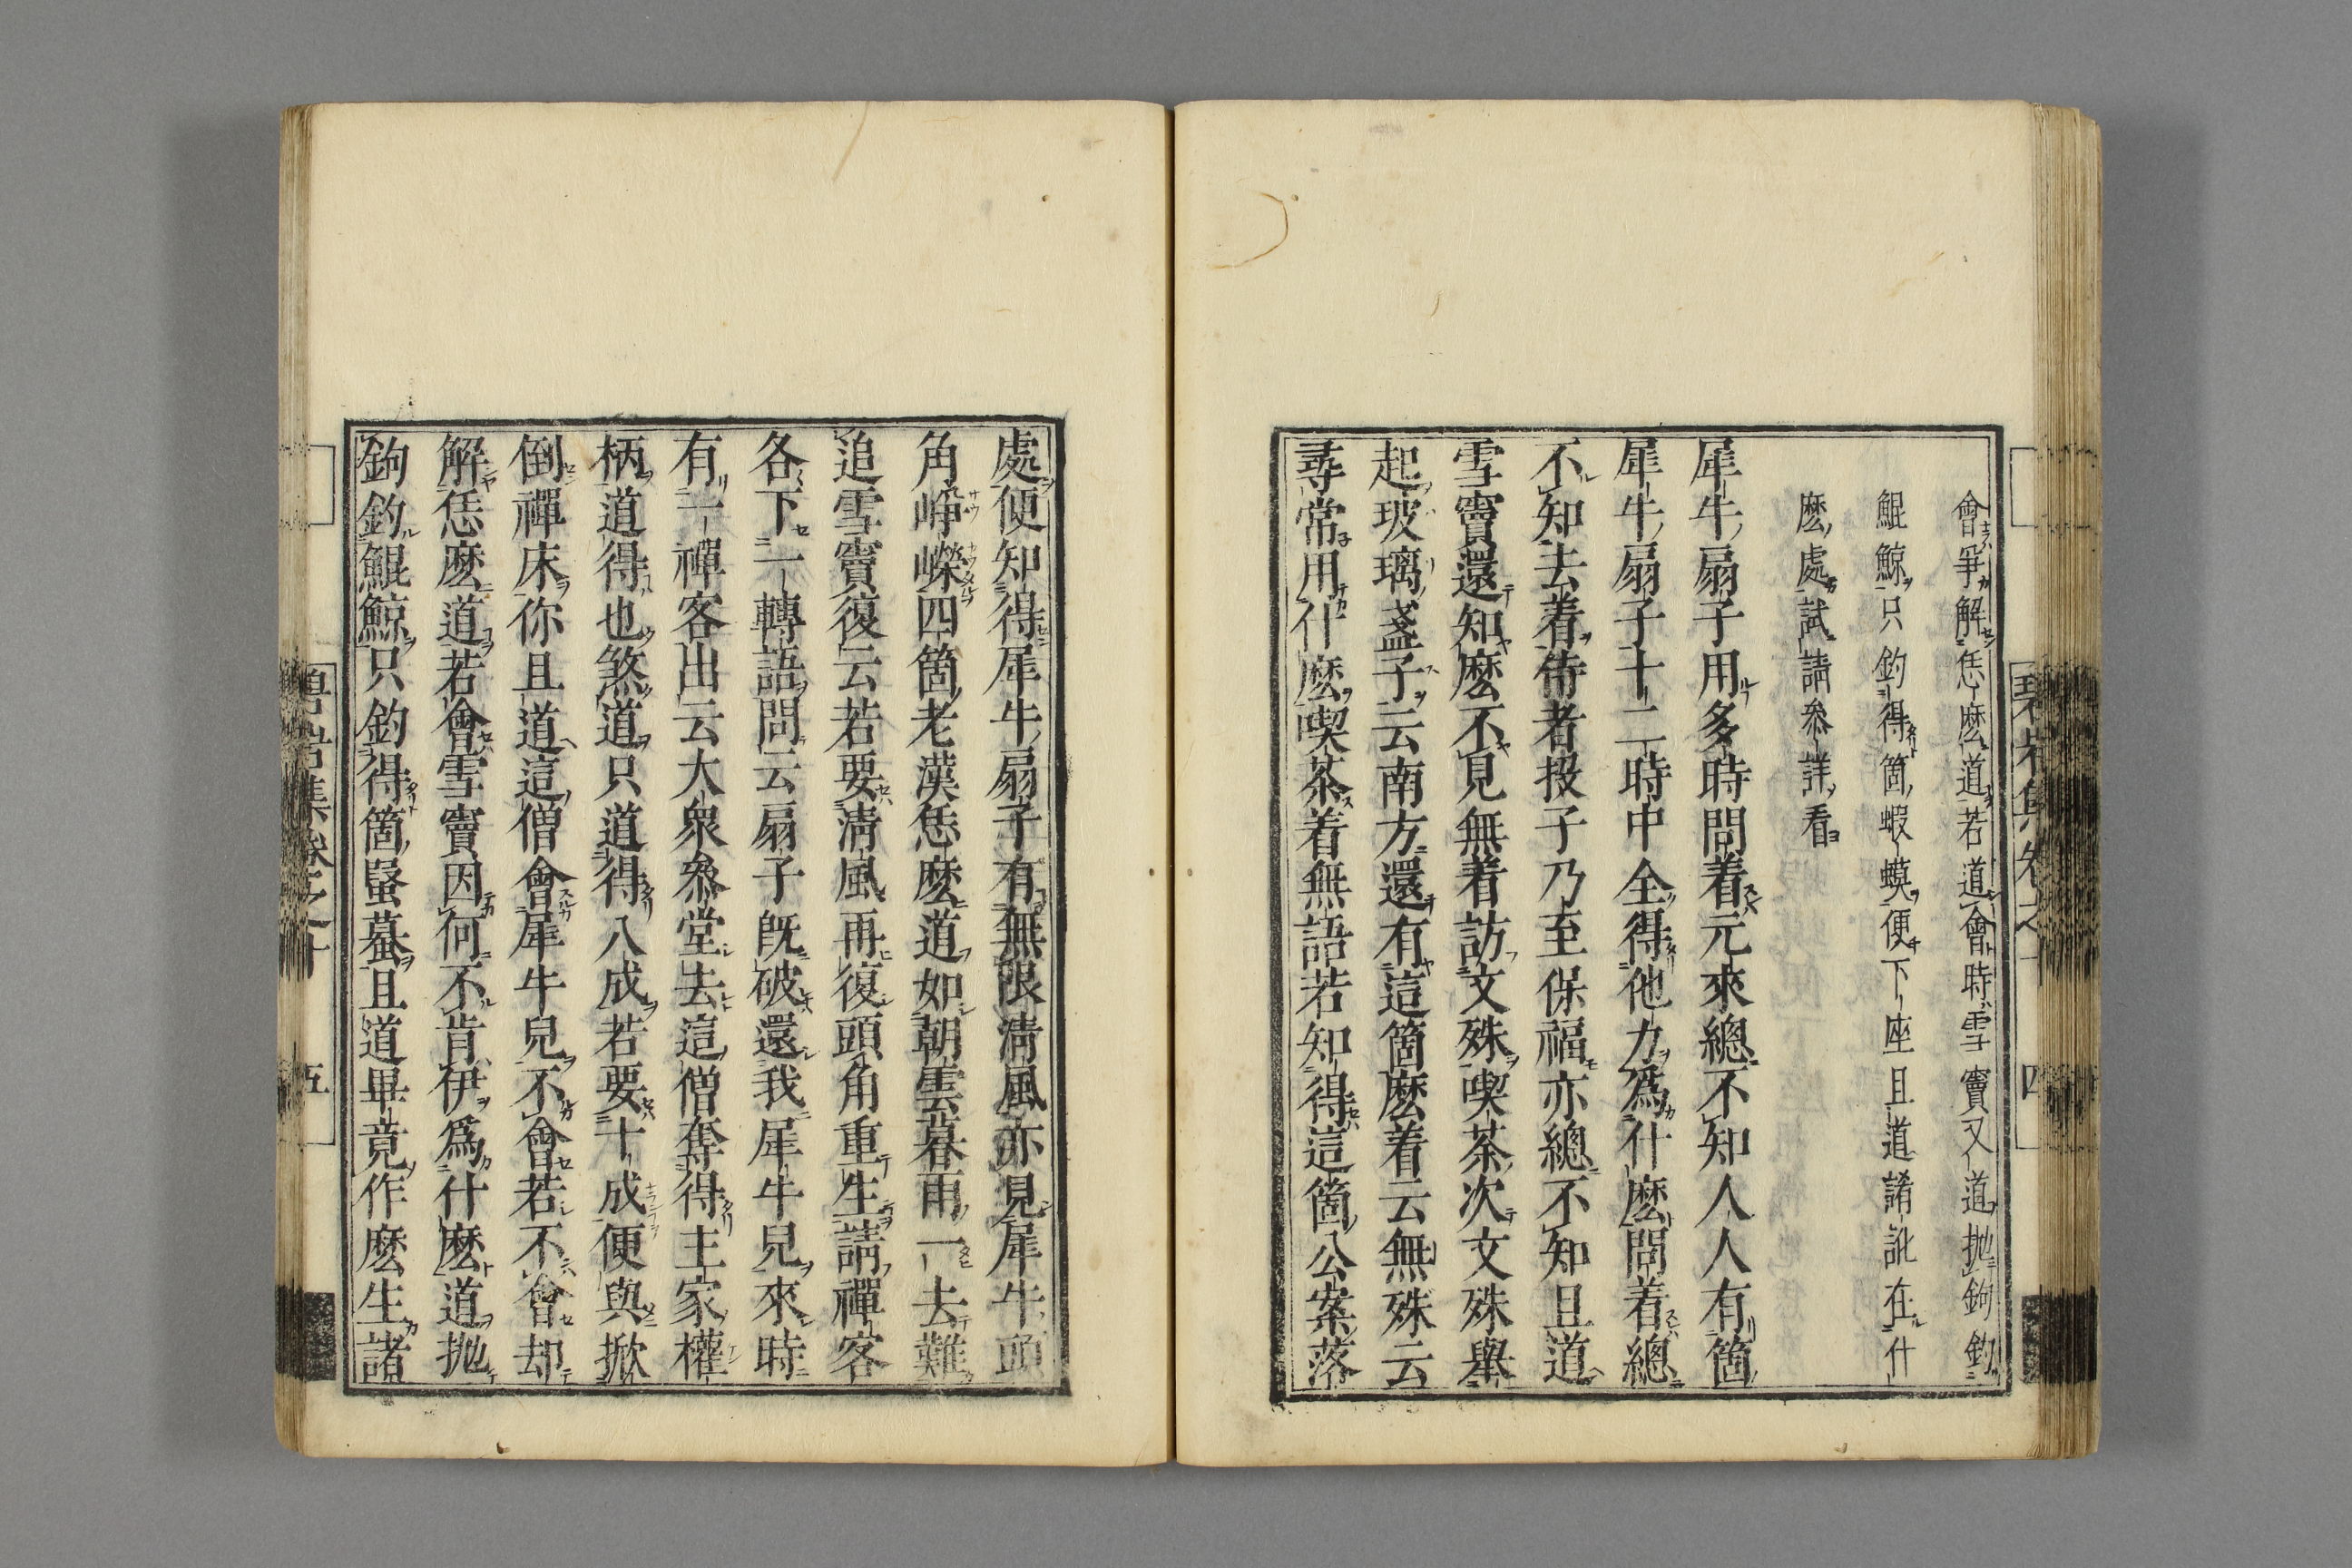 會爭解恁麼道若道會時雪竇又道拋鉤釣
鯤鯨只釣得箇蝦蟆便下座且道誵訛在什
麼處試請參詳看
犀牛扇子用多時問着元來總不知人人有箇
犀牛扇子十二時中全得他力爲什麼問着總
不知去着侍者投子乃至保福亦總不知且道
雪竇還知麼不見無着訪文殊喫茶次文殊舉
起玻璃盞子云南方還有這箇麼着云無殊云
尋常用什麼喫茶着無語若知得這箇公案落
處便知得犀牛扇子有無限淸風亦見犀牛頭
角崢嶸四箇老漢恁麼道如朝雲暮雨一去難
追雪竇復云若要淸風再復頭角重生請禪客
各下一轉語問云扇子旣破還我犀牛兒來時
有一禪客出云大衆參堂去這僧奪得主家權
柄道得也煞道只道得八成若要十成便與掀
倒禪床你且道這僧會犀牛兒不會若不會却
解恁麼道若會雪竇因何不肯伊爲什麼道拋
鉤釣鯤鯨只釣得箇蝦蟇且道畢竟作麼生諸
碧岩集卷之十 四
碧岩集卷之十 五